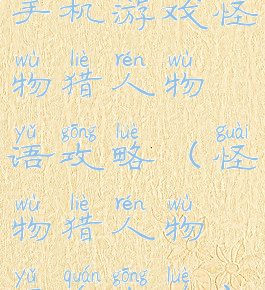 手机游戏怪
wù liè rén wù
物猎人物
yǔ gōng luè guài
语攻略(怪
wù liè rén wù
物猎人物
yǔ quán gōng luè